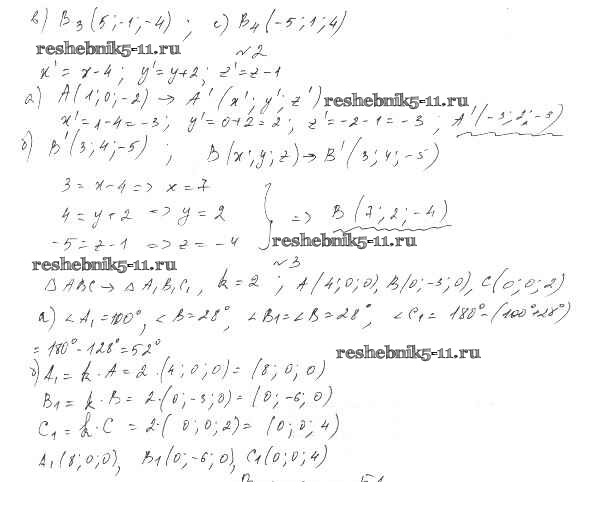 в) B₃(5;-1;-4) ; с) B₄(-5;1;4)
reshebnik5-11.ru
№2
x'=x-4; y'=y+2; z'=z-1
а) A(1;0;-2) → A'(x';y';z') reshebnik5-11.ru
x'=1-4=-3; y'=0+2=2; z'=-2-1=-3; A'(-3;2;-3)
б) B'(3;4;-5) ; B(x;y;z)→B'(3;4;-5)
3=x-4 => x=7
4=y+2 => y=2 => B(7;2;-4)
-5=z-1 => z=-4 reshebnik5-11.ru
reshebnik5-11.ru №3
△ABC→△A₁B₁C₁, k=2 ; A(4;0;0), B(0;-3;0), C(0;0;2)
а) ∠A₁=100°, ∠B=28°, ∠B₁=∠B=28°, ∠C₁= 180°-(100°+28°)
=180°-128°=52°
reshebnik5-11.ru
б) A₁=k·A=2·(4;0;0)=(8;0;0)
B₁=k·B=2·(0;-3;0)=(0;-6;0)
C₁=k·C=2·(0;0;2)=(0;0;4)
A₁(8;0;0), B₁(0;-6;0), C₁(0;0;4)